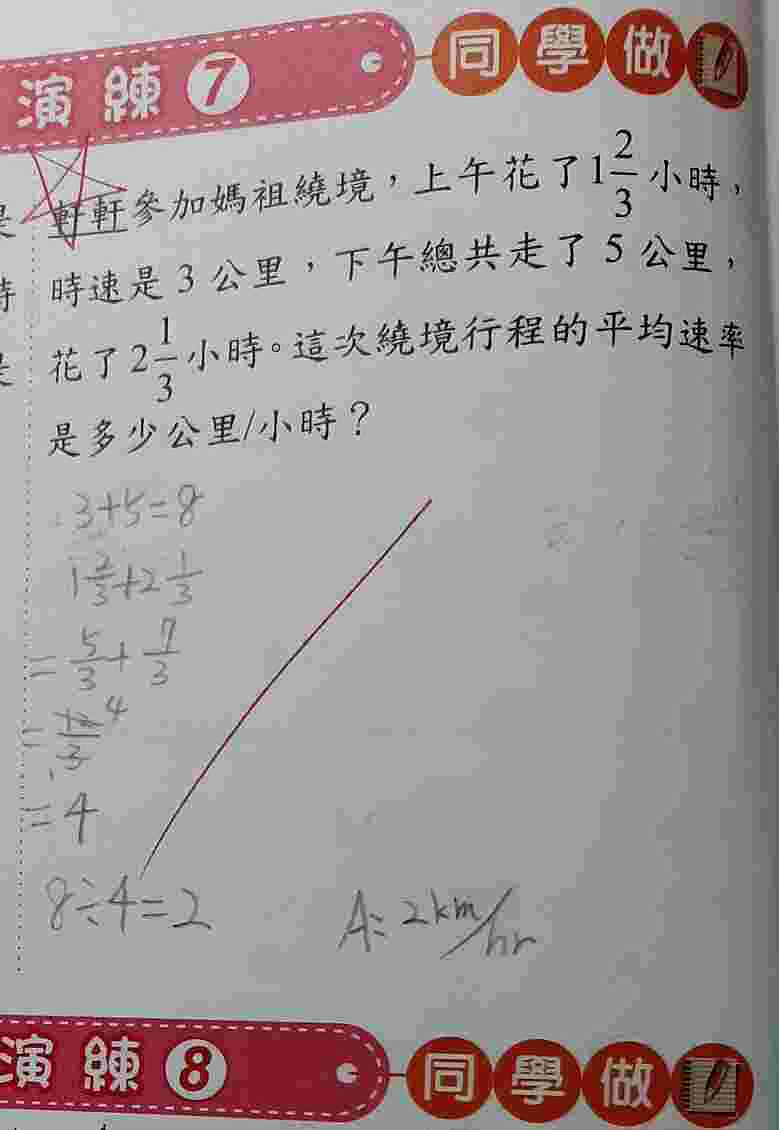 演練 7 同學做
軒軒參加媽祖繞境,上午花了1 2/3 小時,
時速是 3 公里,下午總共走了 5 公里,
花了 2 1/3 小時。這次繞境行程的平均速率
是多少公里/小時?
3+5=8
1 2/3 + 2 1/3
= 5/3 + 7/3
= 12/3 4
= 4
8÷4=2
A: 2km/hr
演練 8 同學做